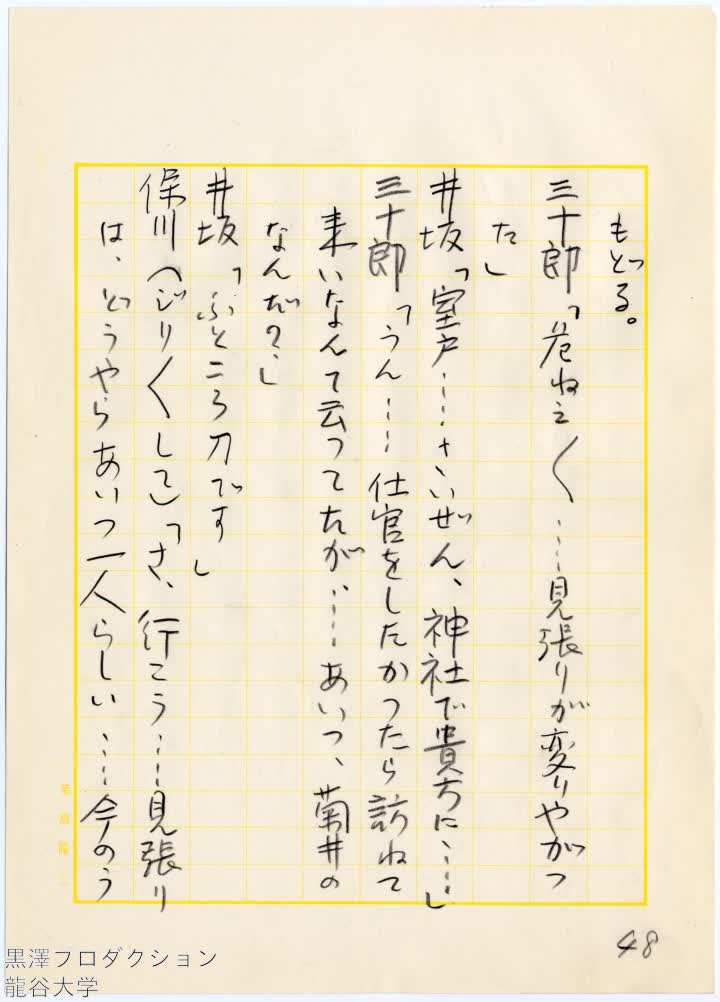 もどる。
三十郎「危ねえ〱……見張りが変りやがつ
た」
井坂「室戸……さいぜん、神社で貴方に……」
三十郎「うん……仕官をしたかつたら訪ねて
来いなんて云つてたが……あいつ、菊井の
なんだ？」
井坂「ふところ刀です」
保川（じり〱して）「さ、行こう……見張り
は、どうやらあいつ一人らしい……今のう
48
黒澤プロダクション
龍谷大学